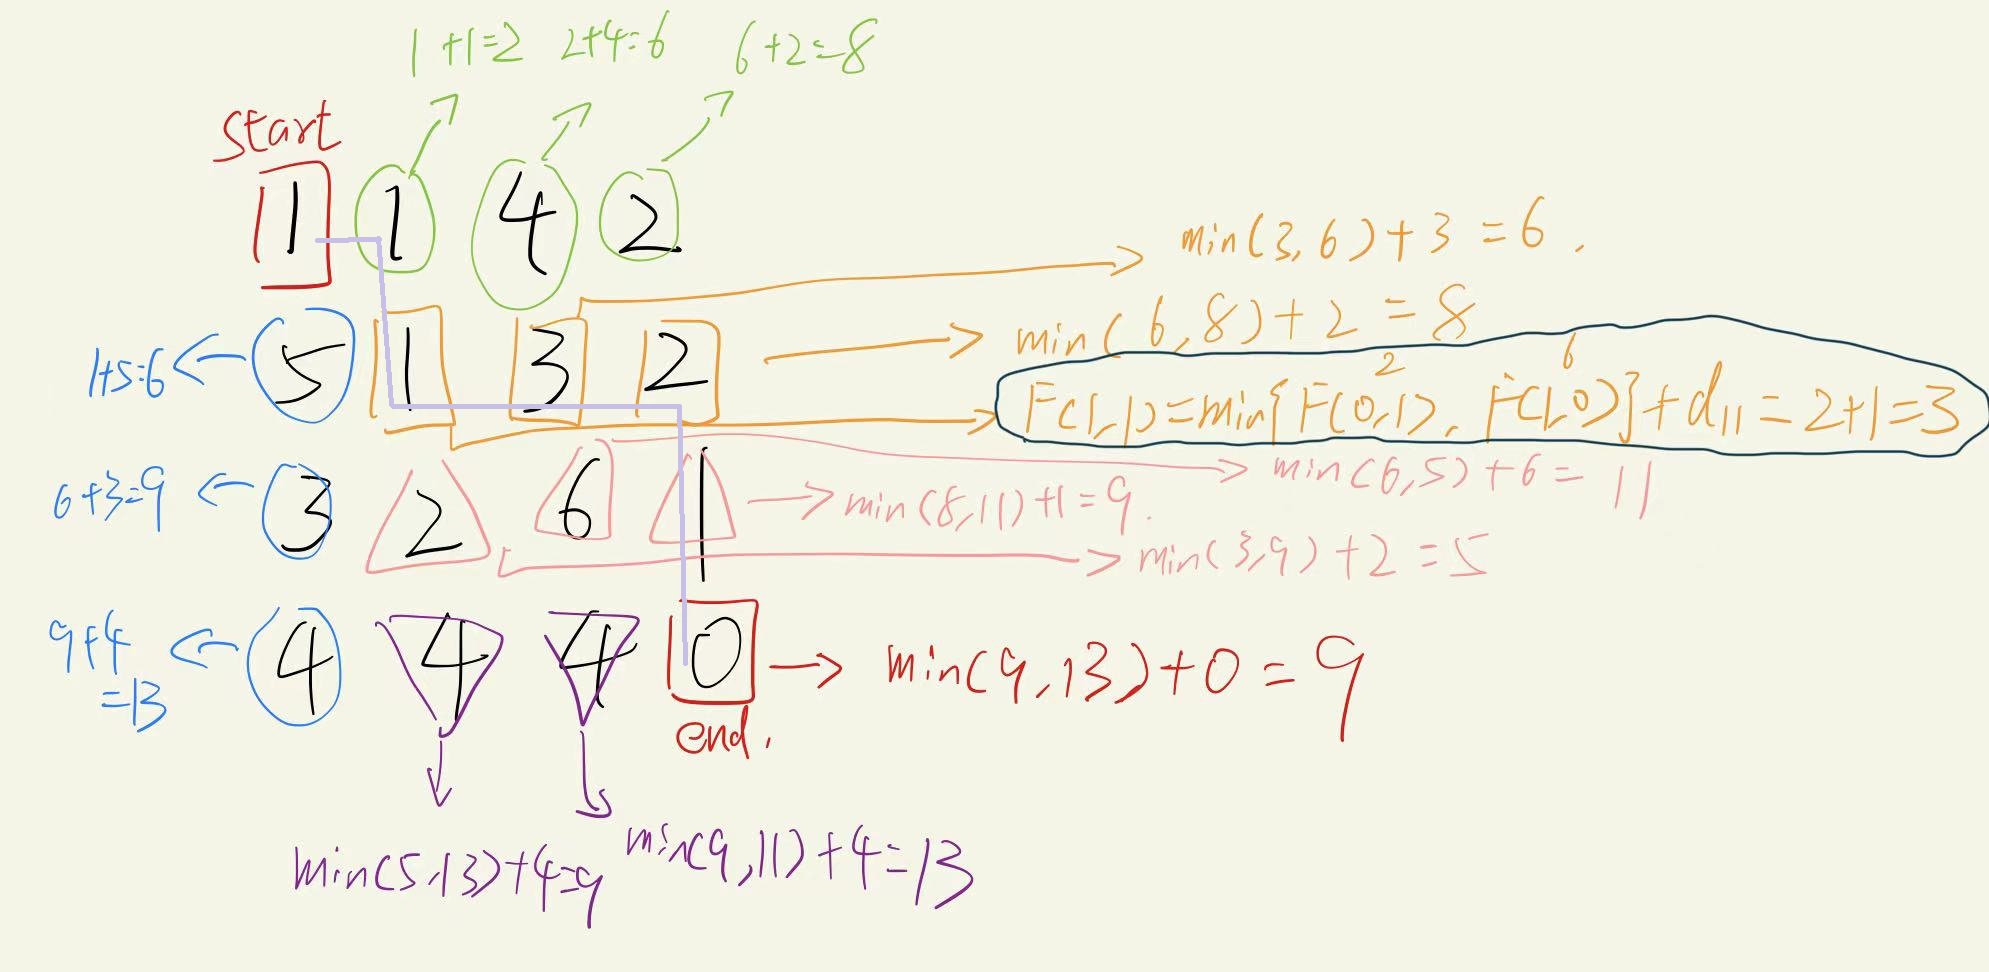 1+1=2 2+4=6 6+2=8
start
1 1 4 2
min(3,6)+3=6.
min(6,8)+2=8
1+5=6 5 1 3 2
2 6
F(1,1)=min{F(0,1),F(1,0)}+d11=2+1=3
6+3=9 3 2 6 1
min(6,5)+6=11
min(8,11)+1=9.
min(3,9)+2=5
9+4
=13
4 4 4 0
min(9,13)+0=9
end.
min(5,13)+4=9
min(9,11)+4=13